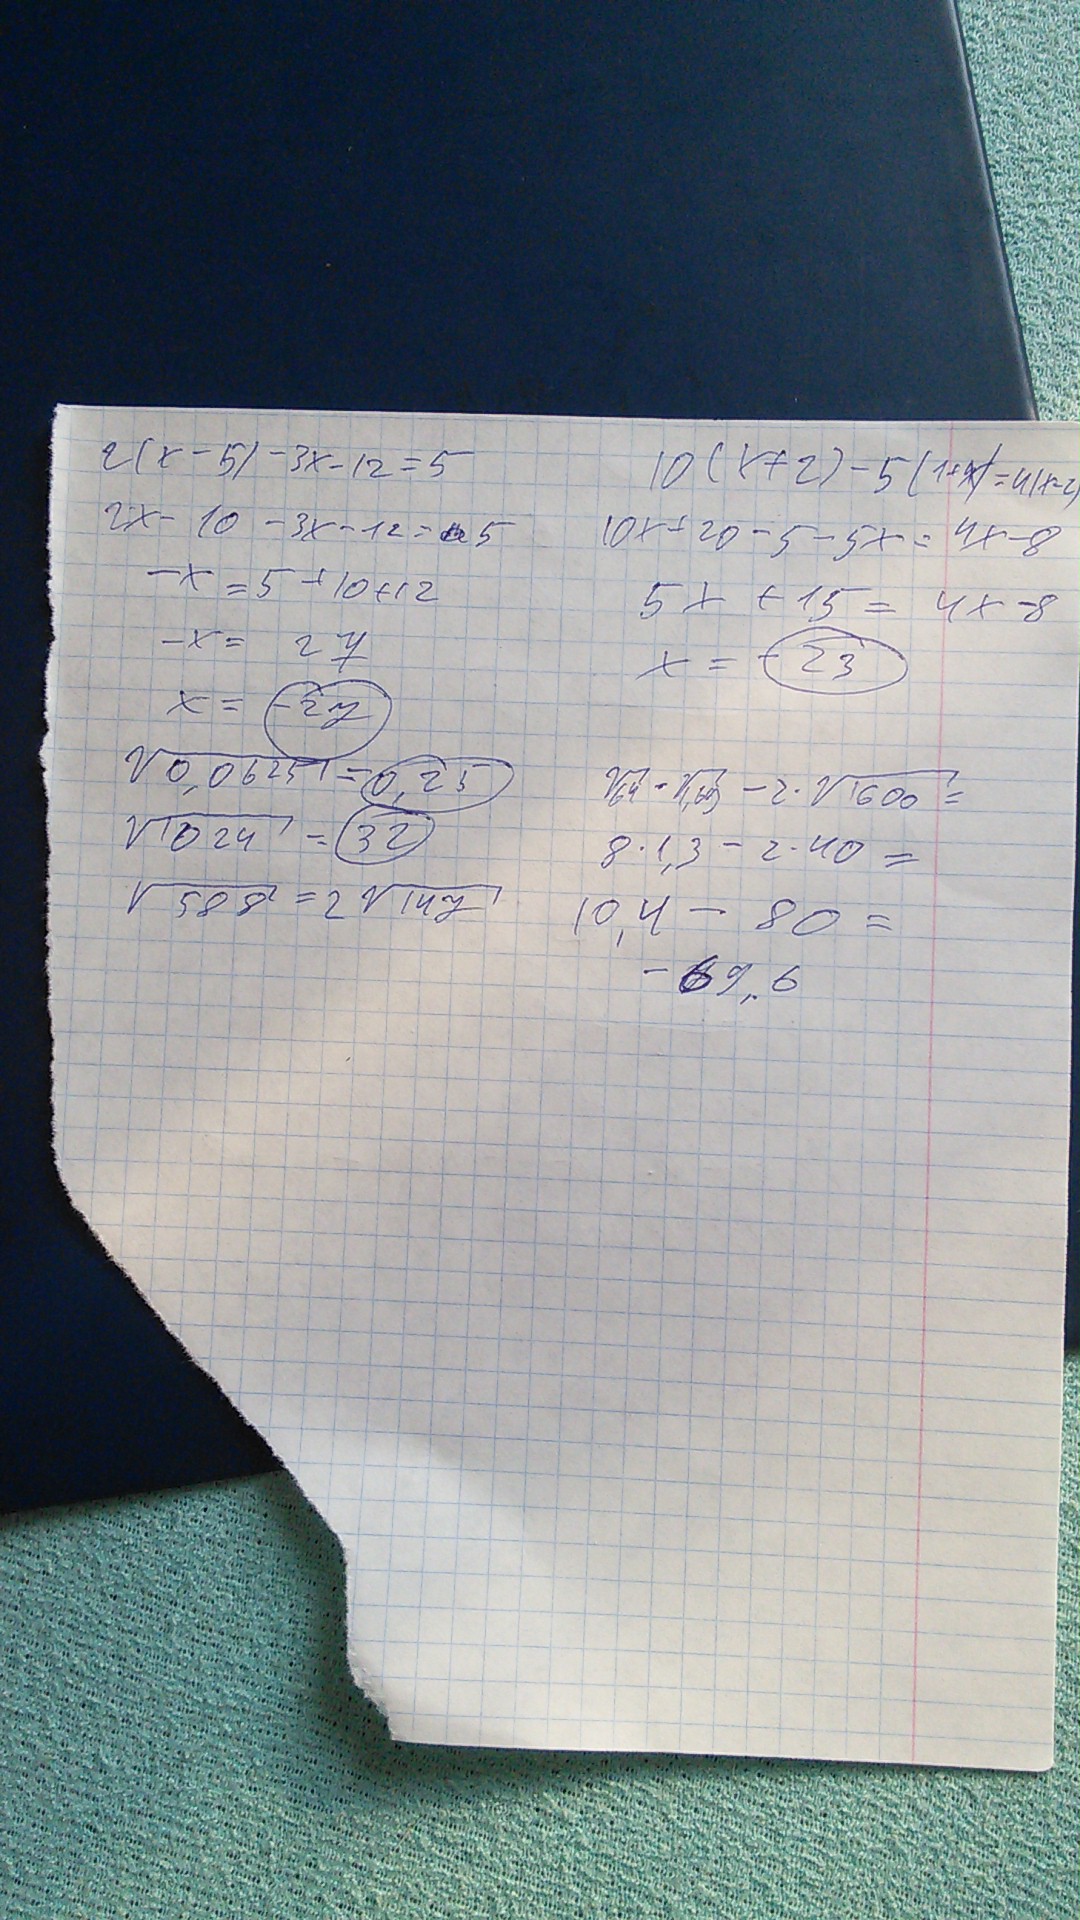 2(x-5)-3x-12=5
2x-10-3x-12=5
-x=5+10+12
-x= 27
x= -27
√0,0625=0,25
√1024 = 32
√588=2√147
10(x+2)-5(1+x)=4(x-2)
10x+20-5-5x=4x-8
5x+15=4x-8
x=-23
√64·√1,69-2·√1600=
8·1,3-2·40=
10,4-80=
-69,6